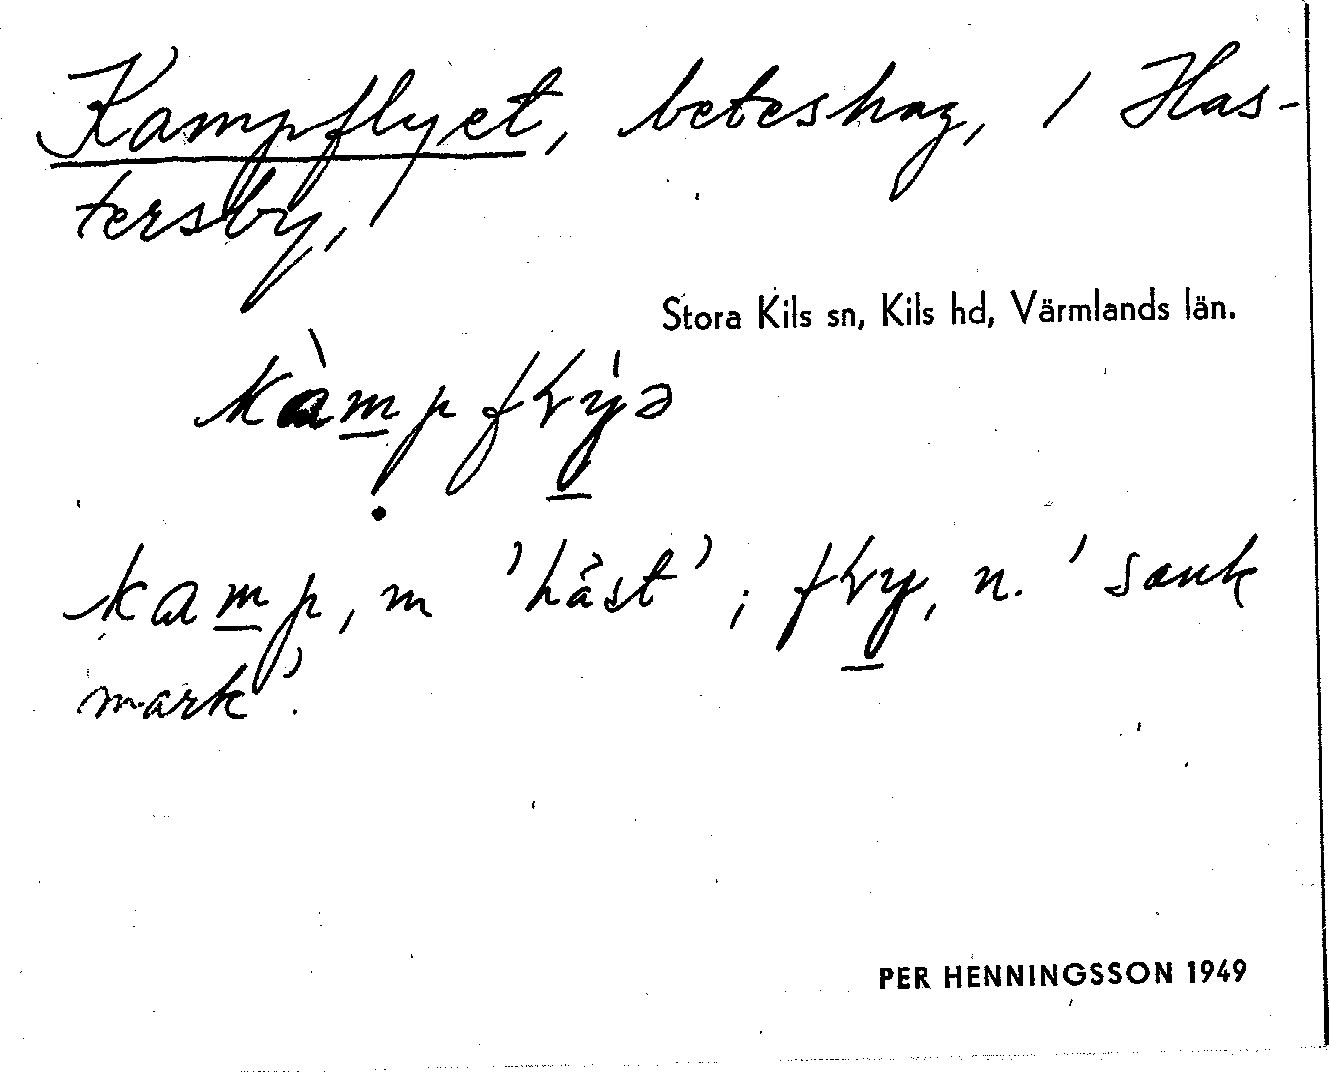 Kampflyet, beteshag, / Has-
tersby, /
Stora Kils sn, Kils hd, Värmlands län.
kàmpfɽýə
kamp, m 'häst'; fɽy, n. 'sank
mark'.
PER HENNINGSSON 1949